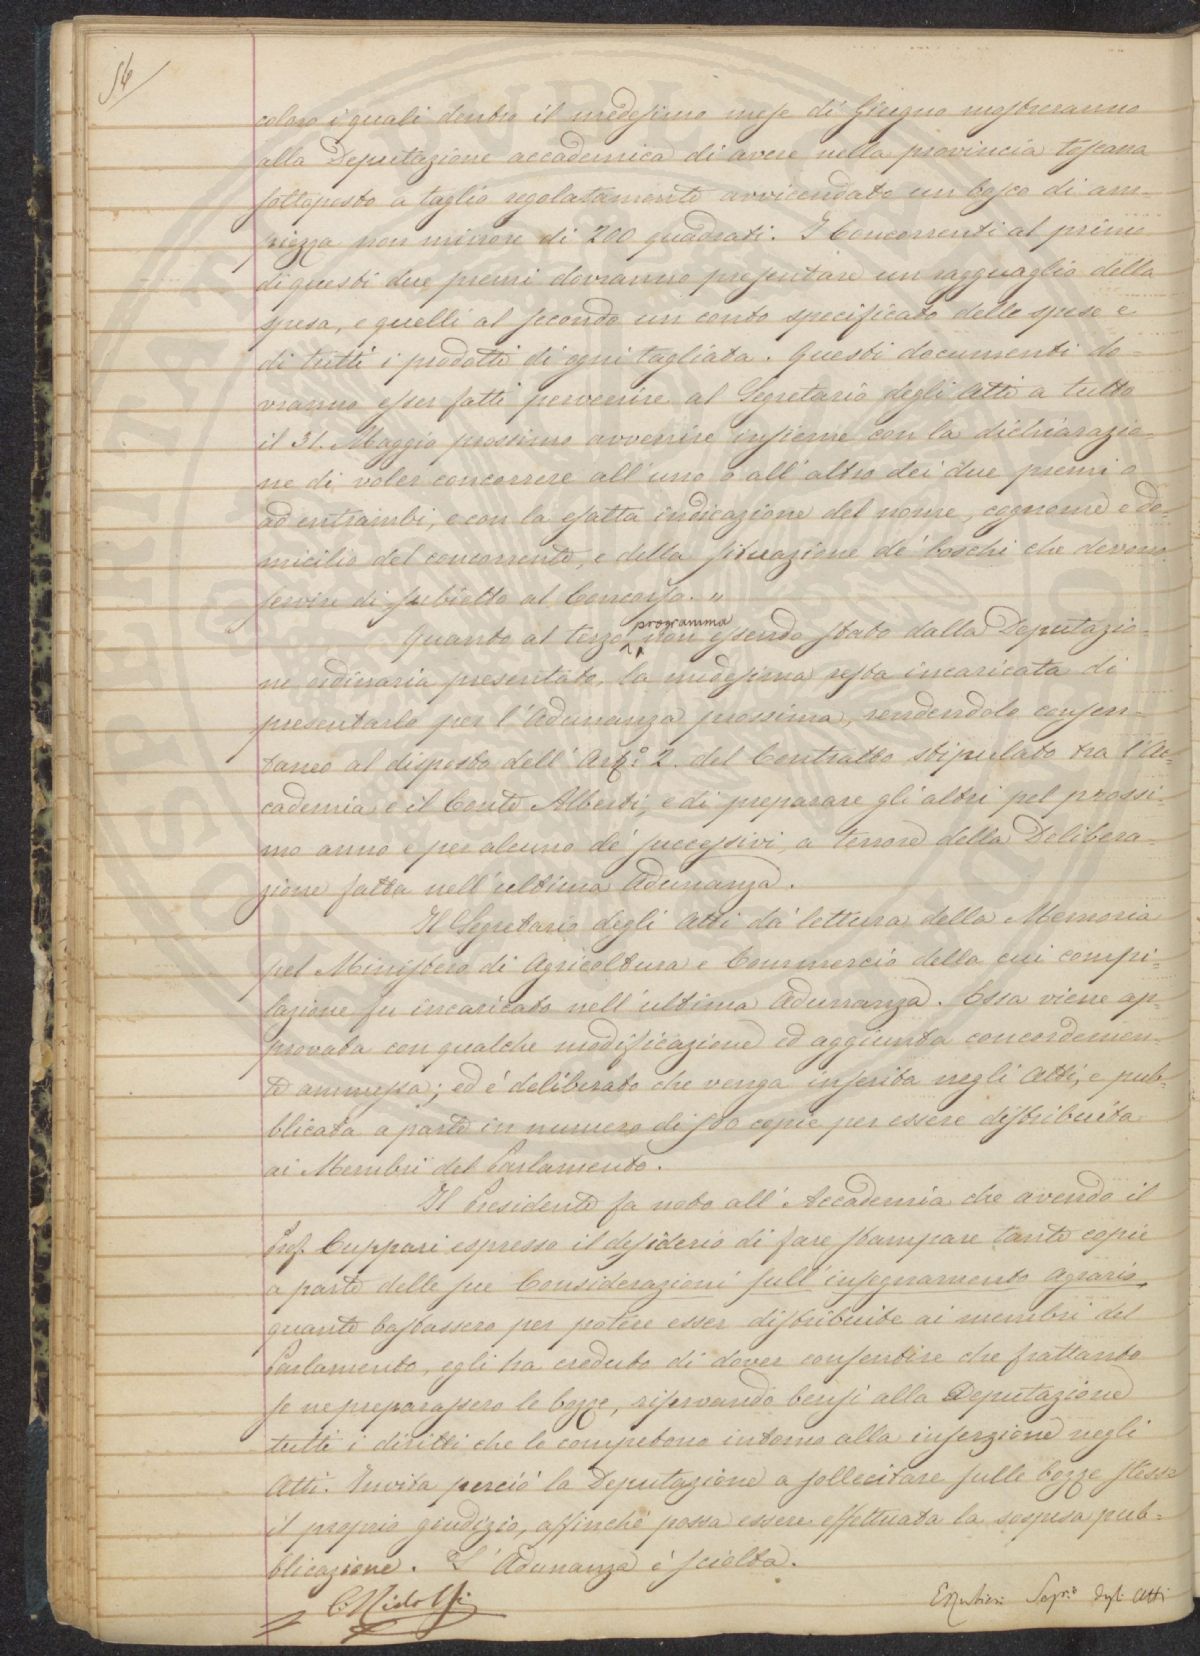 56
coloro i quali dentro il medesimo mese di Giugno mostreranno
alla Deputazione accademica di avere nella provincia toscana
sottoposto a taglio regolatamente avvicendato un bosco di am-
piezza non minore di 200 quadrati. I Concorrenti al primo
di questi due premi dovranno presentare un ragguaglio della
spesa, e quelli al secondo un conto specificato delle spese e
di tutti i prodotti di ogni tagliata. Questi documenti do-
vranno esser fatti pervenire al Segretario degli Atti a tutto
il 31. Maggio prossimo avvenire insieme con la dichiarazio-
ne di voler concorrere all'uno o all'altro dei due premi o
ad entrambi, e con la esatta indicazione del nome, cognome e do-
micilio del concorrente, e della situazione de' boschi che devono
servire di subietto al Concorso. "
Quanto al terzo programma non essendo stato dalla Deputazio-
ne ordinaria presentato, la medesima resta incaricata di
presentarlo per l'Adunanza prossima, rendendolo consen-
taneo al disposto dell'Art.º 2. del Contratto stipulato tra l'Ac-
cademia e il Conte Alberti, e di preparare gli altri pel prossi-
mo anno e per alcuno de' successivi a tenore della Delibera-
zione fatta nell'ultima Adunanza.
Il Segretario degli Atti dà lettura della Memoria
pel Ministero di Agricoltura e Commercio della cui compi-
lazione fu incaricato nell'ultima Adunanza. Essa viene ap-
provata con qualche modificazione ed aggiunta concordemen-
te ammessa; ed é deliberato che venga inserita negli Atti, e pub-
blicata a parte in numero di 500 copie per essere distribuita
ai Membri del Parlamento.
Il Presidente fa noto all'Accademia che avendo il
Prof. Cuppari espresso il desiderio di fare stampare tante copie
a parte delle sue Considerazioni sull'insegnamento agrario,
quante bastassero per potere esser distribuite ai membri del
Parlamento, egli ha creduto di dover consentire che frattanto
se ne preparassero le bozze, riservando bensì alla Deputazione
tutti i diritti che le competono intorno alla inserzione negli
Atti. Invita perciò la Deputazione a sollecitare sulle bozze stesse
il proprio giudizio, affinchè possa essere effettuata la sospesa pub-
blicazione. L'Adunanza é sciolta.
C. Ridolfi
E Rubieri Segr.º degli Atti